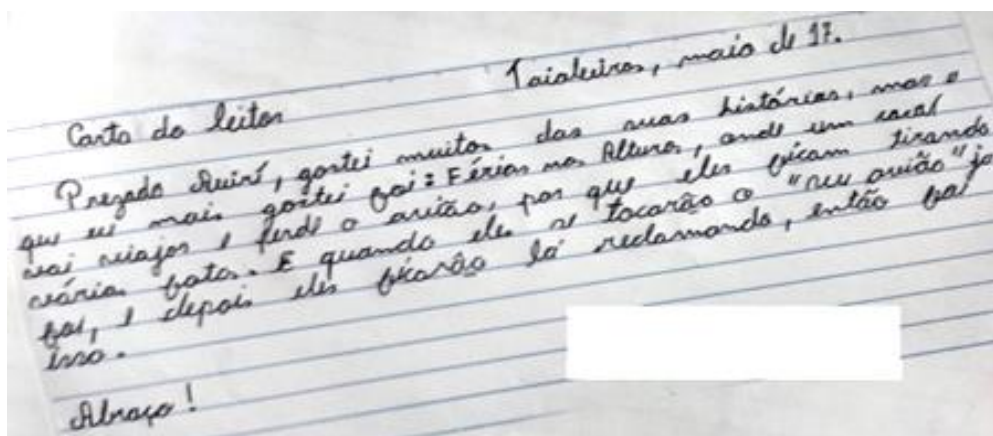 Taiobeiras, maio de 17.
Carta do leitor
Prezado Auirí, gostei muitos das suas histórias, mas o
que eu mais gostei foi: Férias nas Alturas, onde um casal
vai viajar e perde o avião, por que eles ficam tirando
várias fotos. E quando eles se tocarão o "seu avião" ja
foi, e depois eles ficarão lá reclamando, então foi
isso.
Abraço!